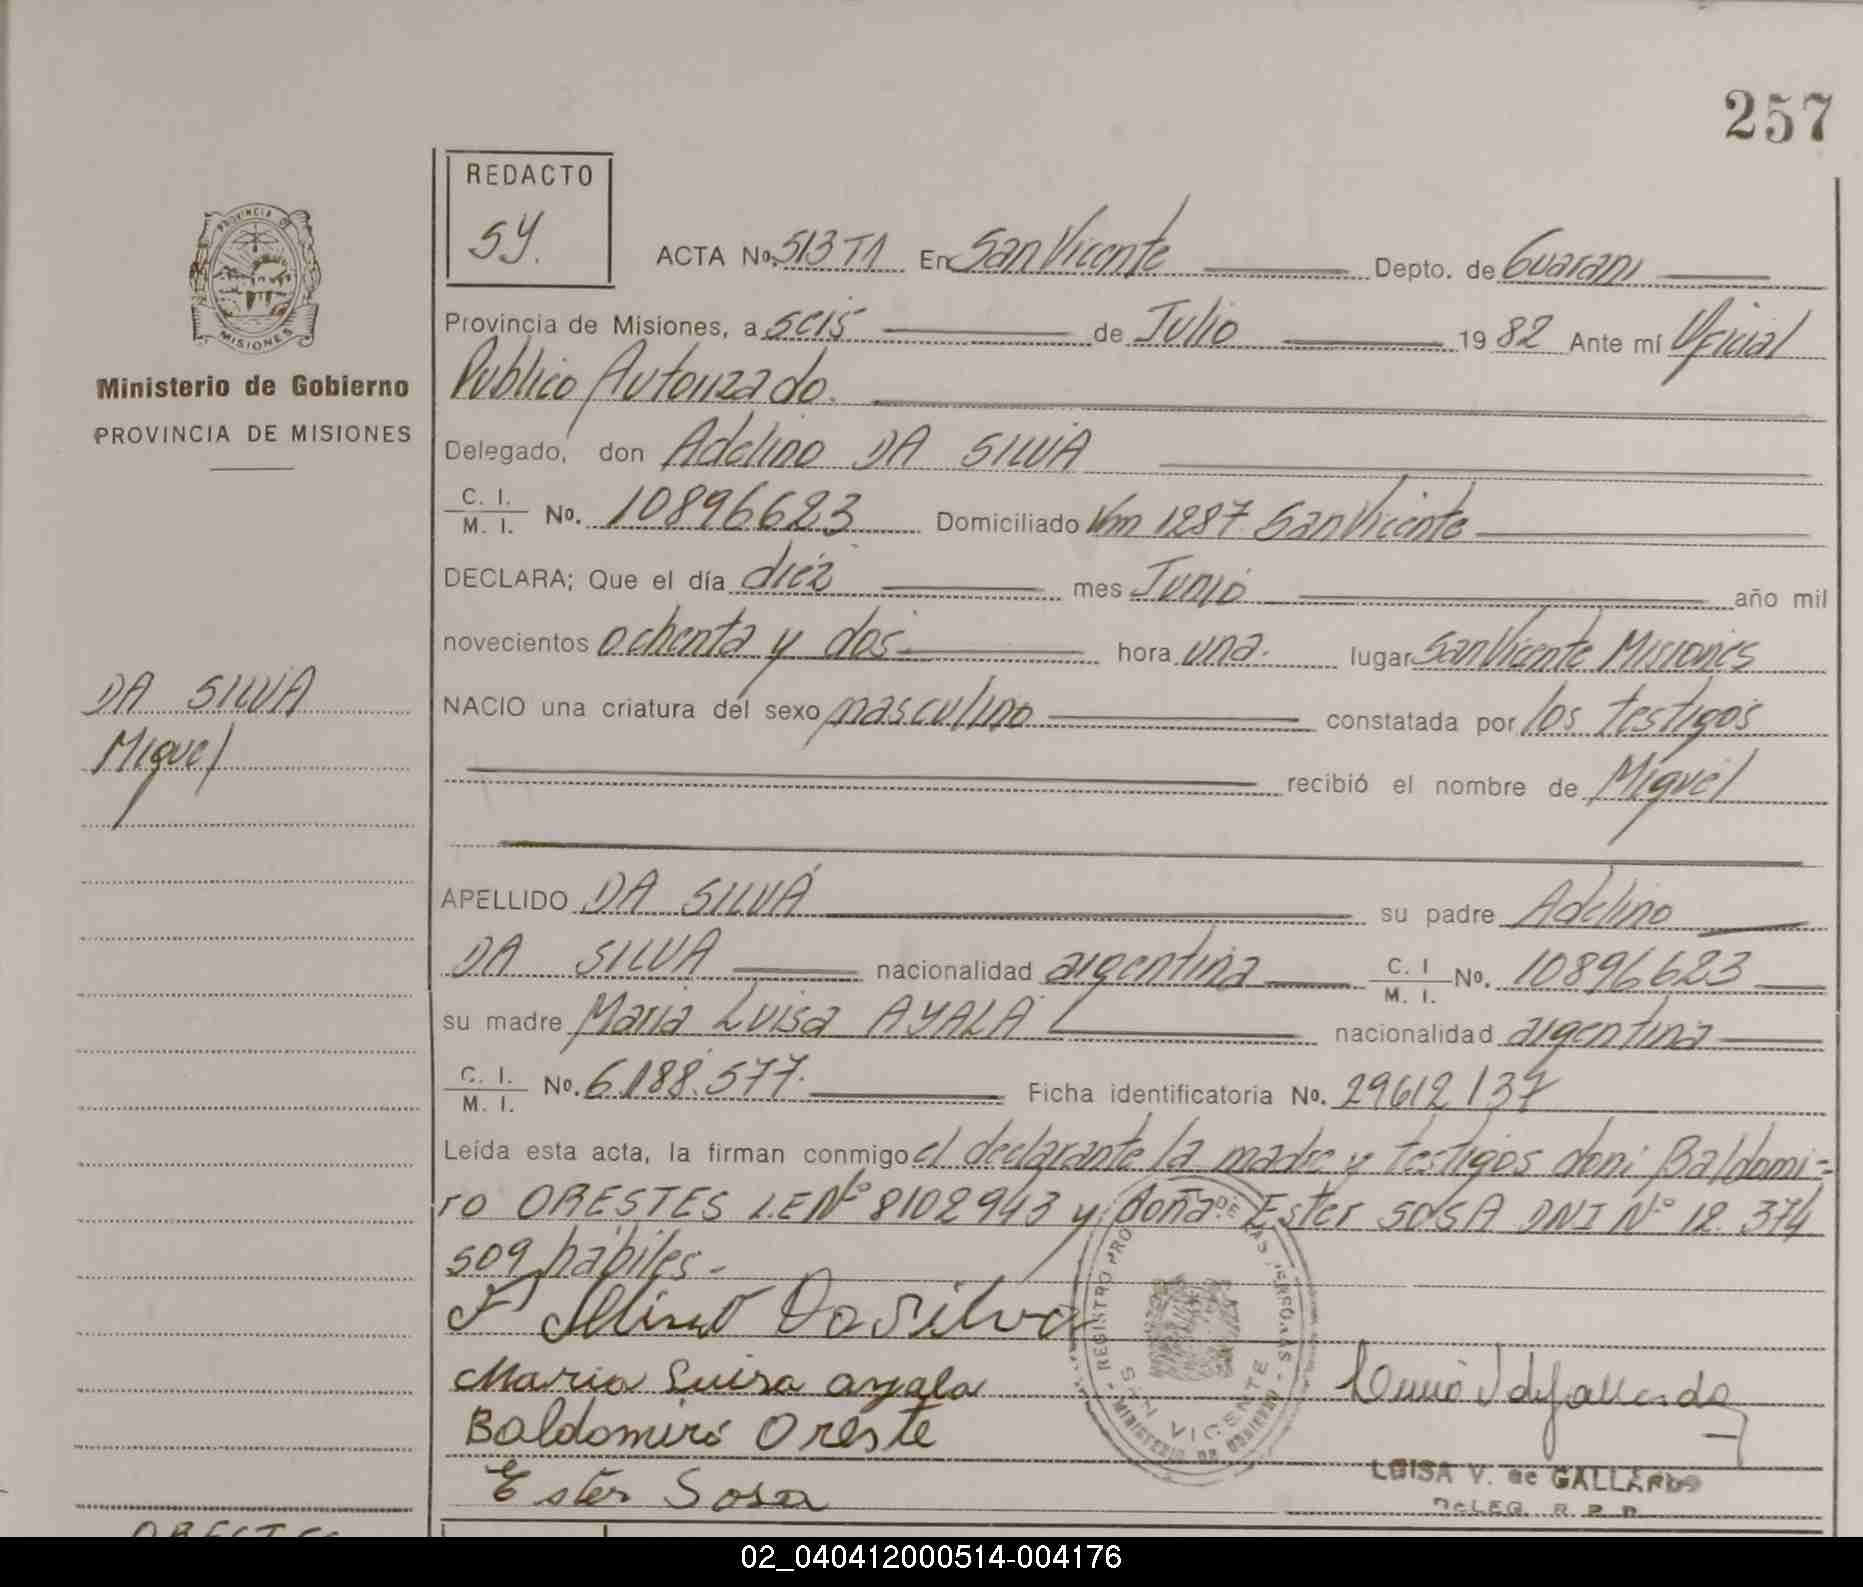 257
REDACTO
SY.
ACTA No. 513 T1 En San Vicente Depto. de Guarani
PROVINCIA DE MISIONES
Provincia de Misiones, a seis de Julio 1982 Ante mí Oficial
Publico Autorizado.
Ministerio de Gobierno
PROVINCIA DE MISIONES
Delegado, don Adelino DA SILVA
C. I. / M. I. No. 10896623 Domiciliado Km 1287 San Vicente
DECLARA; Que el día diez mes Junio año mil
novecientos ochenta y dos hora una. lugar San Vicente Misiones
DA SILVA
Miguel
NACIO una criatura del sexo masculino constatada por los testigos
recibió el nombre de Miguel
APELLIDO DA SILVA su padre Adelino
DA SILVA nacionalidad argentina C. I / M. I. No. 10896623
su madre Maria Luisa AYALA nacionalidad argentina
C. I. / M. I. No. 6.188.577. Ficha identificatoria No. 29612137
Leída esta acta, la firman conmigo el declarante la madre y testigos don: Baldomi=
ro ORESTES L.E Nº 8102943 y doña Ester SOSA DNI Nº 12.374
509 hábiles.-
Da Silva
Maria Luisa ayala
Baldomiro Oreste
Ester Sosa
REGISTRO PRO DE LAS PERSONAS
SAN VICENTE
MINISTERIO DE GOBIERNO
LUISA V. de GALLARDO
DELEG. R. P. P.
02_040412000514-004176